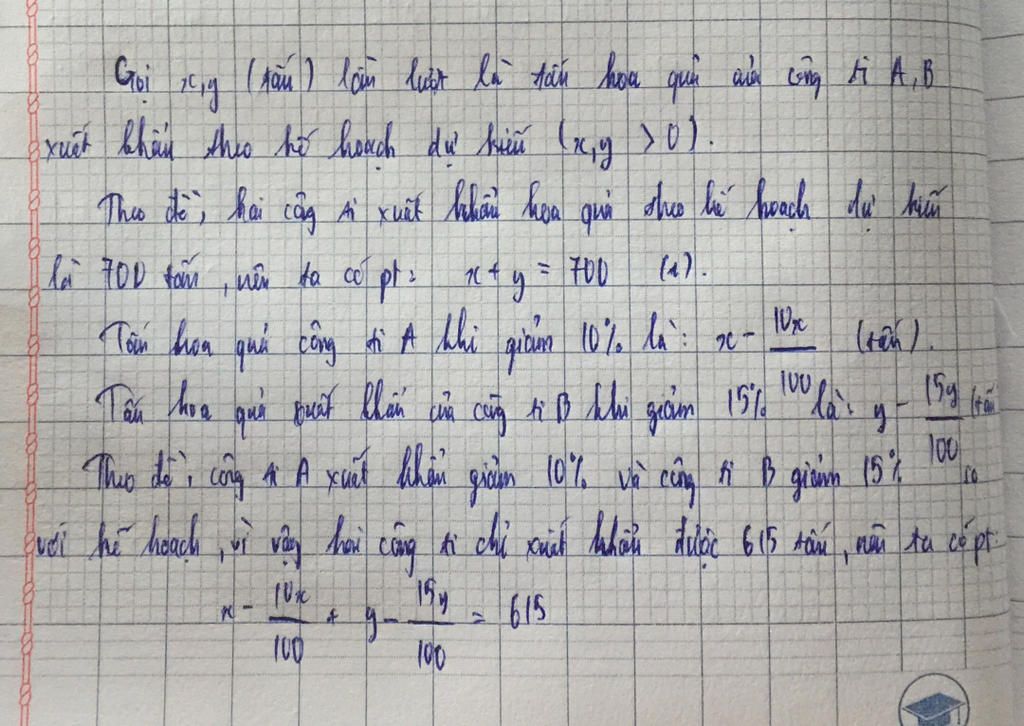 Gọi x,y (tấn) lần lượt là tấn hoa quả của công ti A,B
xuất khẩu theo kế hoạch dự kiến (x,y > 0).
Theo đề, hai công ti xuất khẩu hoa quả theo kế hoạch dự kiến
là 700 tấn, nên ta có pt: x + y = 700 (1).
Tấn hoa quả công ti A khi giảm 10% là: x - 10x/100 (tấn).
Tấn hoa quả xuất khẩu của công ti B khi giảm 15% là: y - 15y/100 (tấn
Theo đề, công ti A xuất khẩu giảm 10% và công ti B giảm 15% so
với kế hoạch, vì vậy hai công ti chỉ xuất khẩu được 615 tấn, nên ta có pt:
x - 10x/100 + y - 15y/100 = 615